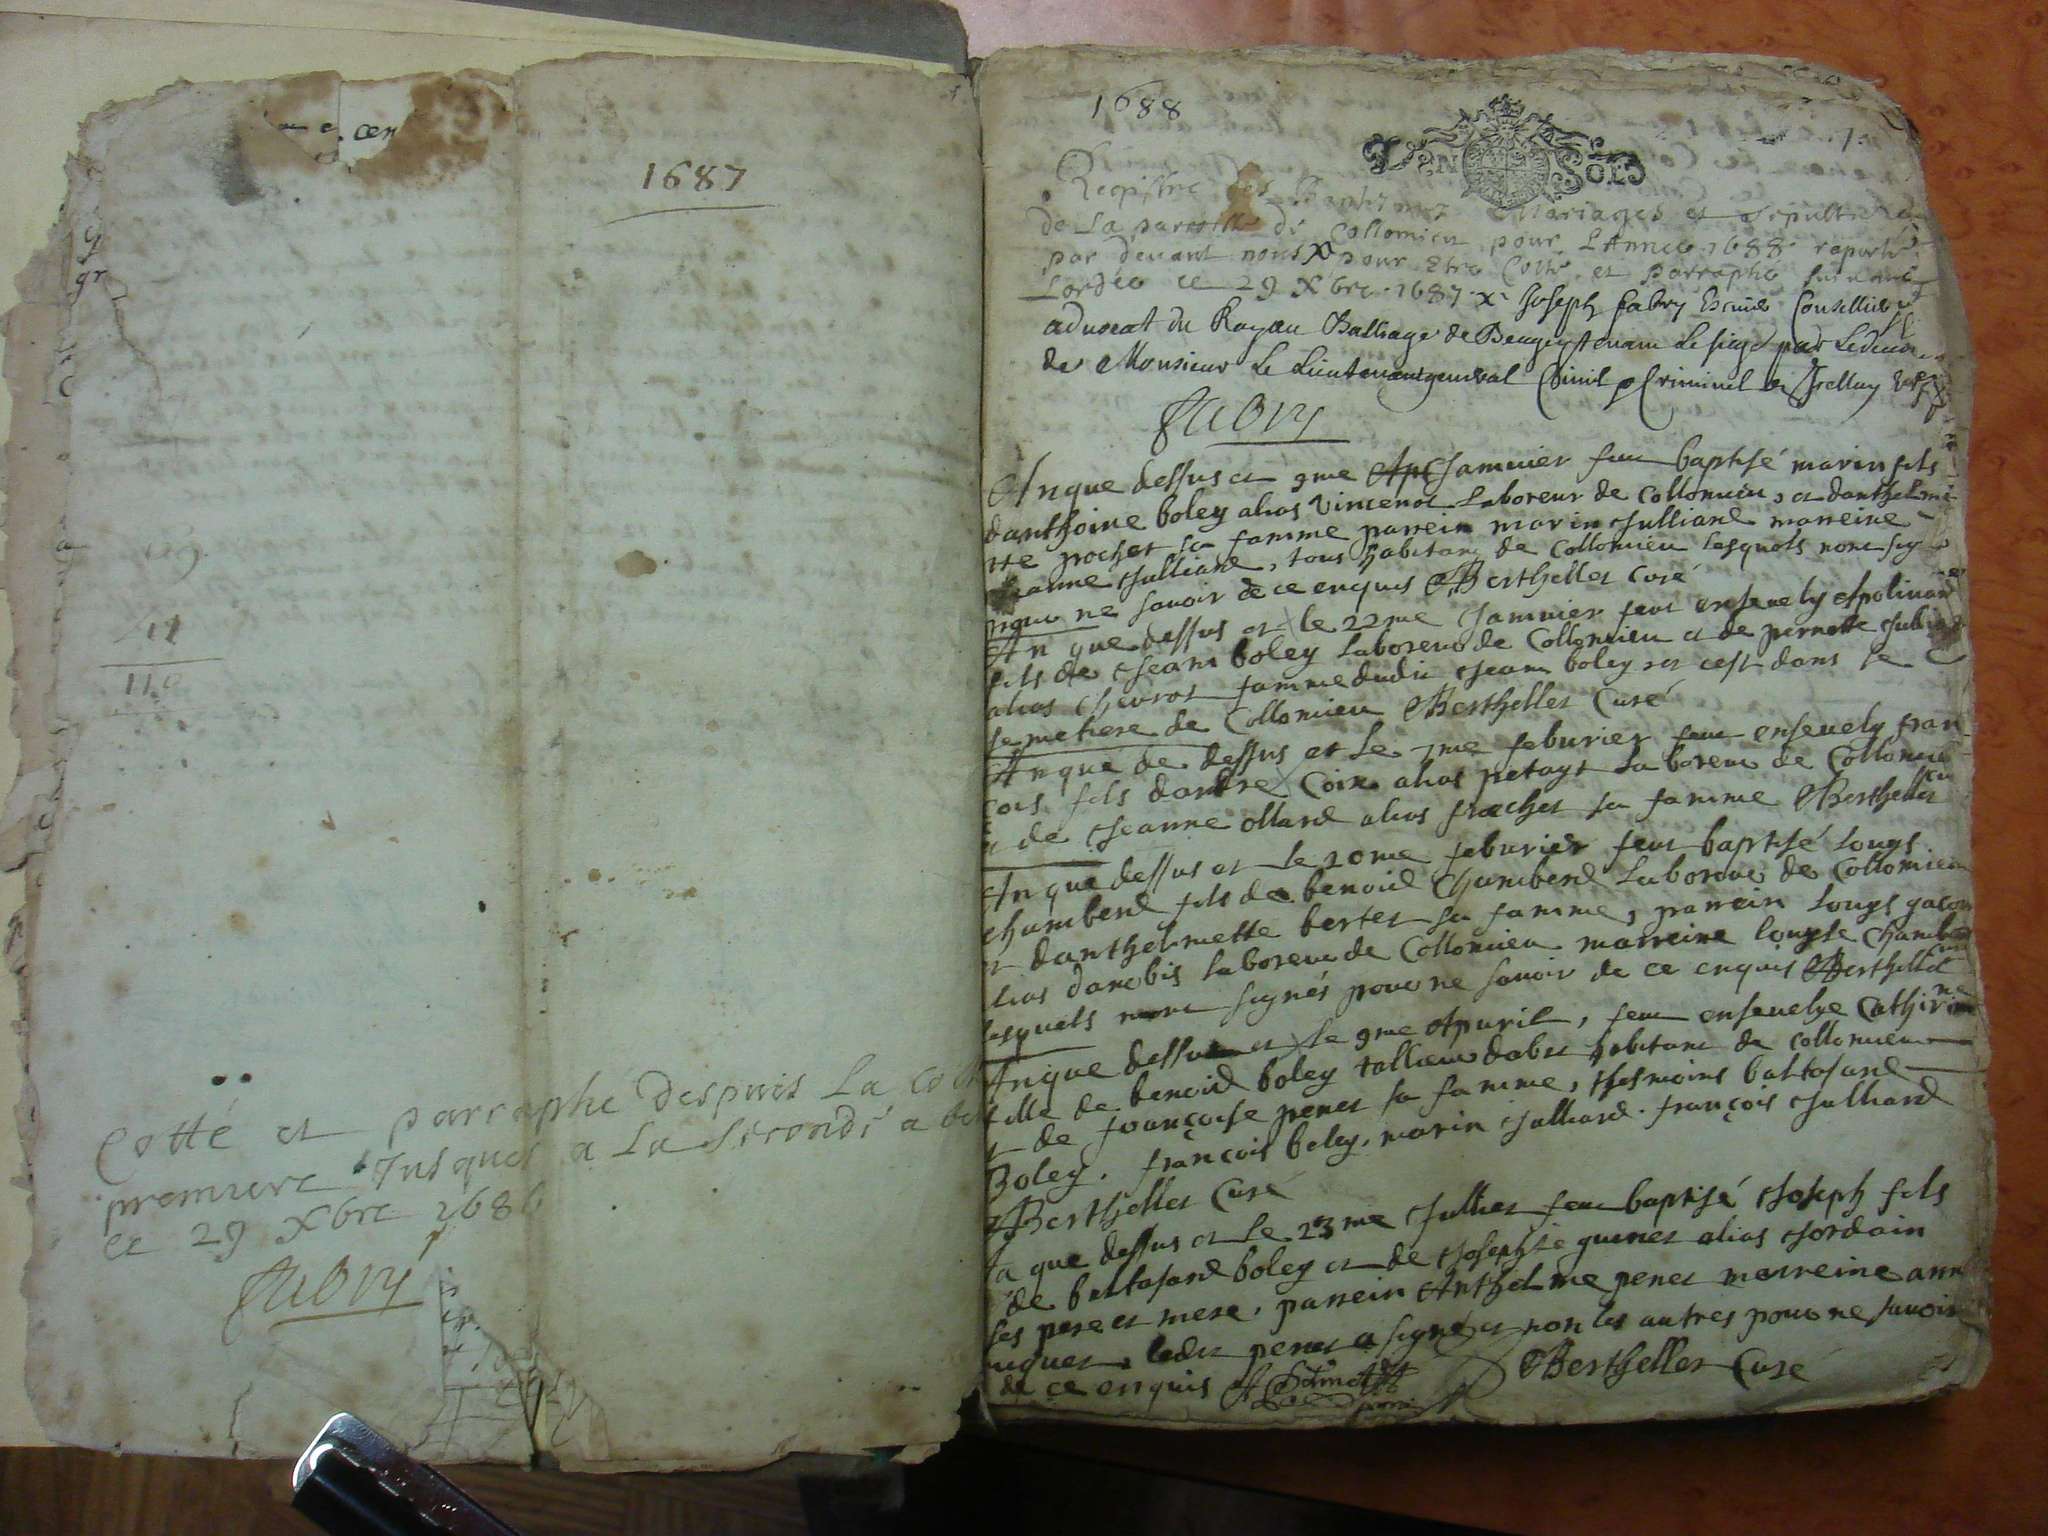 cen
1687
119
11
110
Cotté et parraphé despuis la cott
premiere jusques a la seconde a
ce 29 xbre 1686
fabry
1688
VN SOLS
1
Registre des Baptesmes Mariages et sepultures
de la parroisse de Collomieu pour l'Annee 1688 raporté
par devant nous x pour etre Cotté et parraphé suivant
Lordce ce 29 xbre 1687 x Joseph fabry Escuier Conseillier et
advocat du Roy au Balliage de Beugey tenant le siege par
de Monsieur le Lieutenant general Civil et Criminel
fabry
An que dessus et 9me Janvier feut baptisé marin fils
danthoine boley alias Vincenot laboreur de Collomieu, et danthelme
tte prochet sa famme parrein marin Julliard marreine
Jeanne Julliard, tous habitans de Collomieu lesquels nont sig
pour ne savoir de ce enquis Berthellet Curé
An que dessus et le 22me Janvier feut ensevely Apolinard
fils de Jean boley laboreur de Collomieu et de pernette Julliard
alias Chevrot famme dudit Jean boley et cest dans le
semetiere de Collomieu Berthellet Curé
An que de dessus et le 7me feburier feut ensevely fran
cois fils dandre Coin alias petayt laboreur de Collomieu
et de Jeanne ollard alias frachet sa famme Berthellet
An que dessus et le 20me feburier feut baptisé louys
chamberd fils de benoid Chamberd laboreur de Collomieu
et danthelmette bertet sa famme, parrein louys gacon
alias danobis laboreur de Collomieu marreine louyse Chamberd
lesquels nont signés pour ne savoir de ce enquis Berthellet
curé
An que dessus et le 9me Apuril, feut ensevelye Catherine
fille de benoid boley tallieur dabit habitant de Collomieu
et de francoise penet sa famme, thesmoins baltasard
Boley, francois boley, marin Julliard, françois Julliard
Berthellet Curé
An que dessus et le 23me Julliet feut baptisé Joseph fils
de baltasard boley et de Josephte guinet alias Jordain
ses pere et mere, parrein Anthelme penet marreine ann
uguet, ledit penet a signé et non les autres pour ne savoir
de ce enquis Berthellet Curé